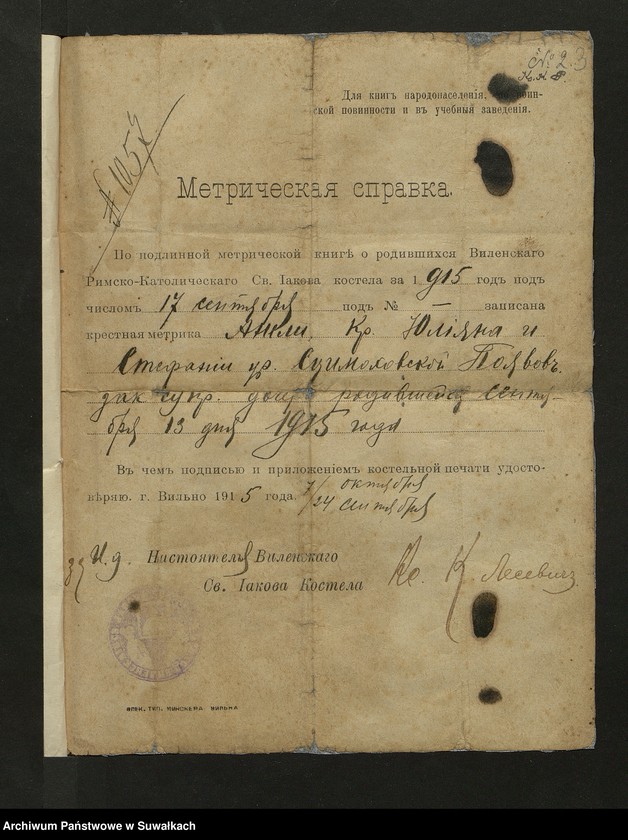 № 2
Для книгъ народонаселенія,
ской повинности и въ учебныя заведенія.
№ 1057
Метрическая справка.
По подлинной метрической книгѣ о родившихся Виленскаго
Римско-Католическаго Св. Іакова костела за 1915 годъ подъ
числомъ 17 сентября подъ № — записана
крестная метрика Анны. Кр. Юліяна и
Стефаніи ур.
зак супр. дочь родившейся сентя-
бря 13 дня 1915 года
Въ чемъ подписью и приложеніемъ костельной печати удосто-
вѣряю. г. Вильно 1915 года. 7/ октября
/24 сентября
И.д. Настоятеля Виленскаго
Св. Іакова Костела Кс. К
ЭЛЕК. ТИП. МИНСКЕРА ВИЛЬНА
Archiwum Państwowe w Suwałkach